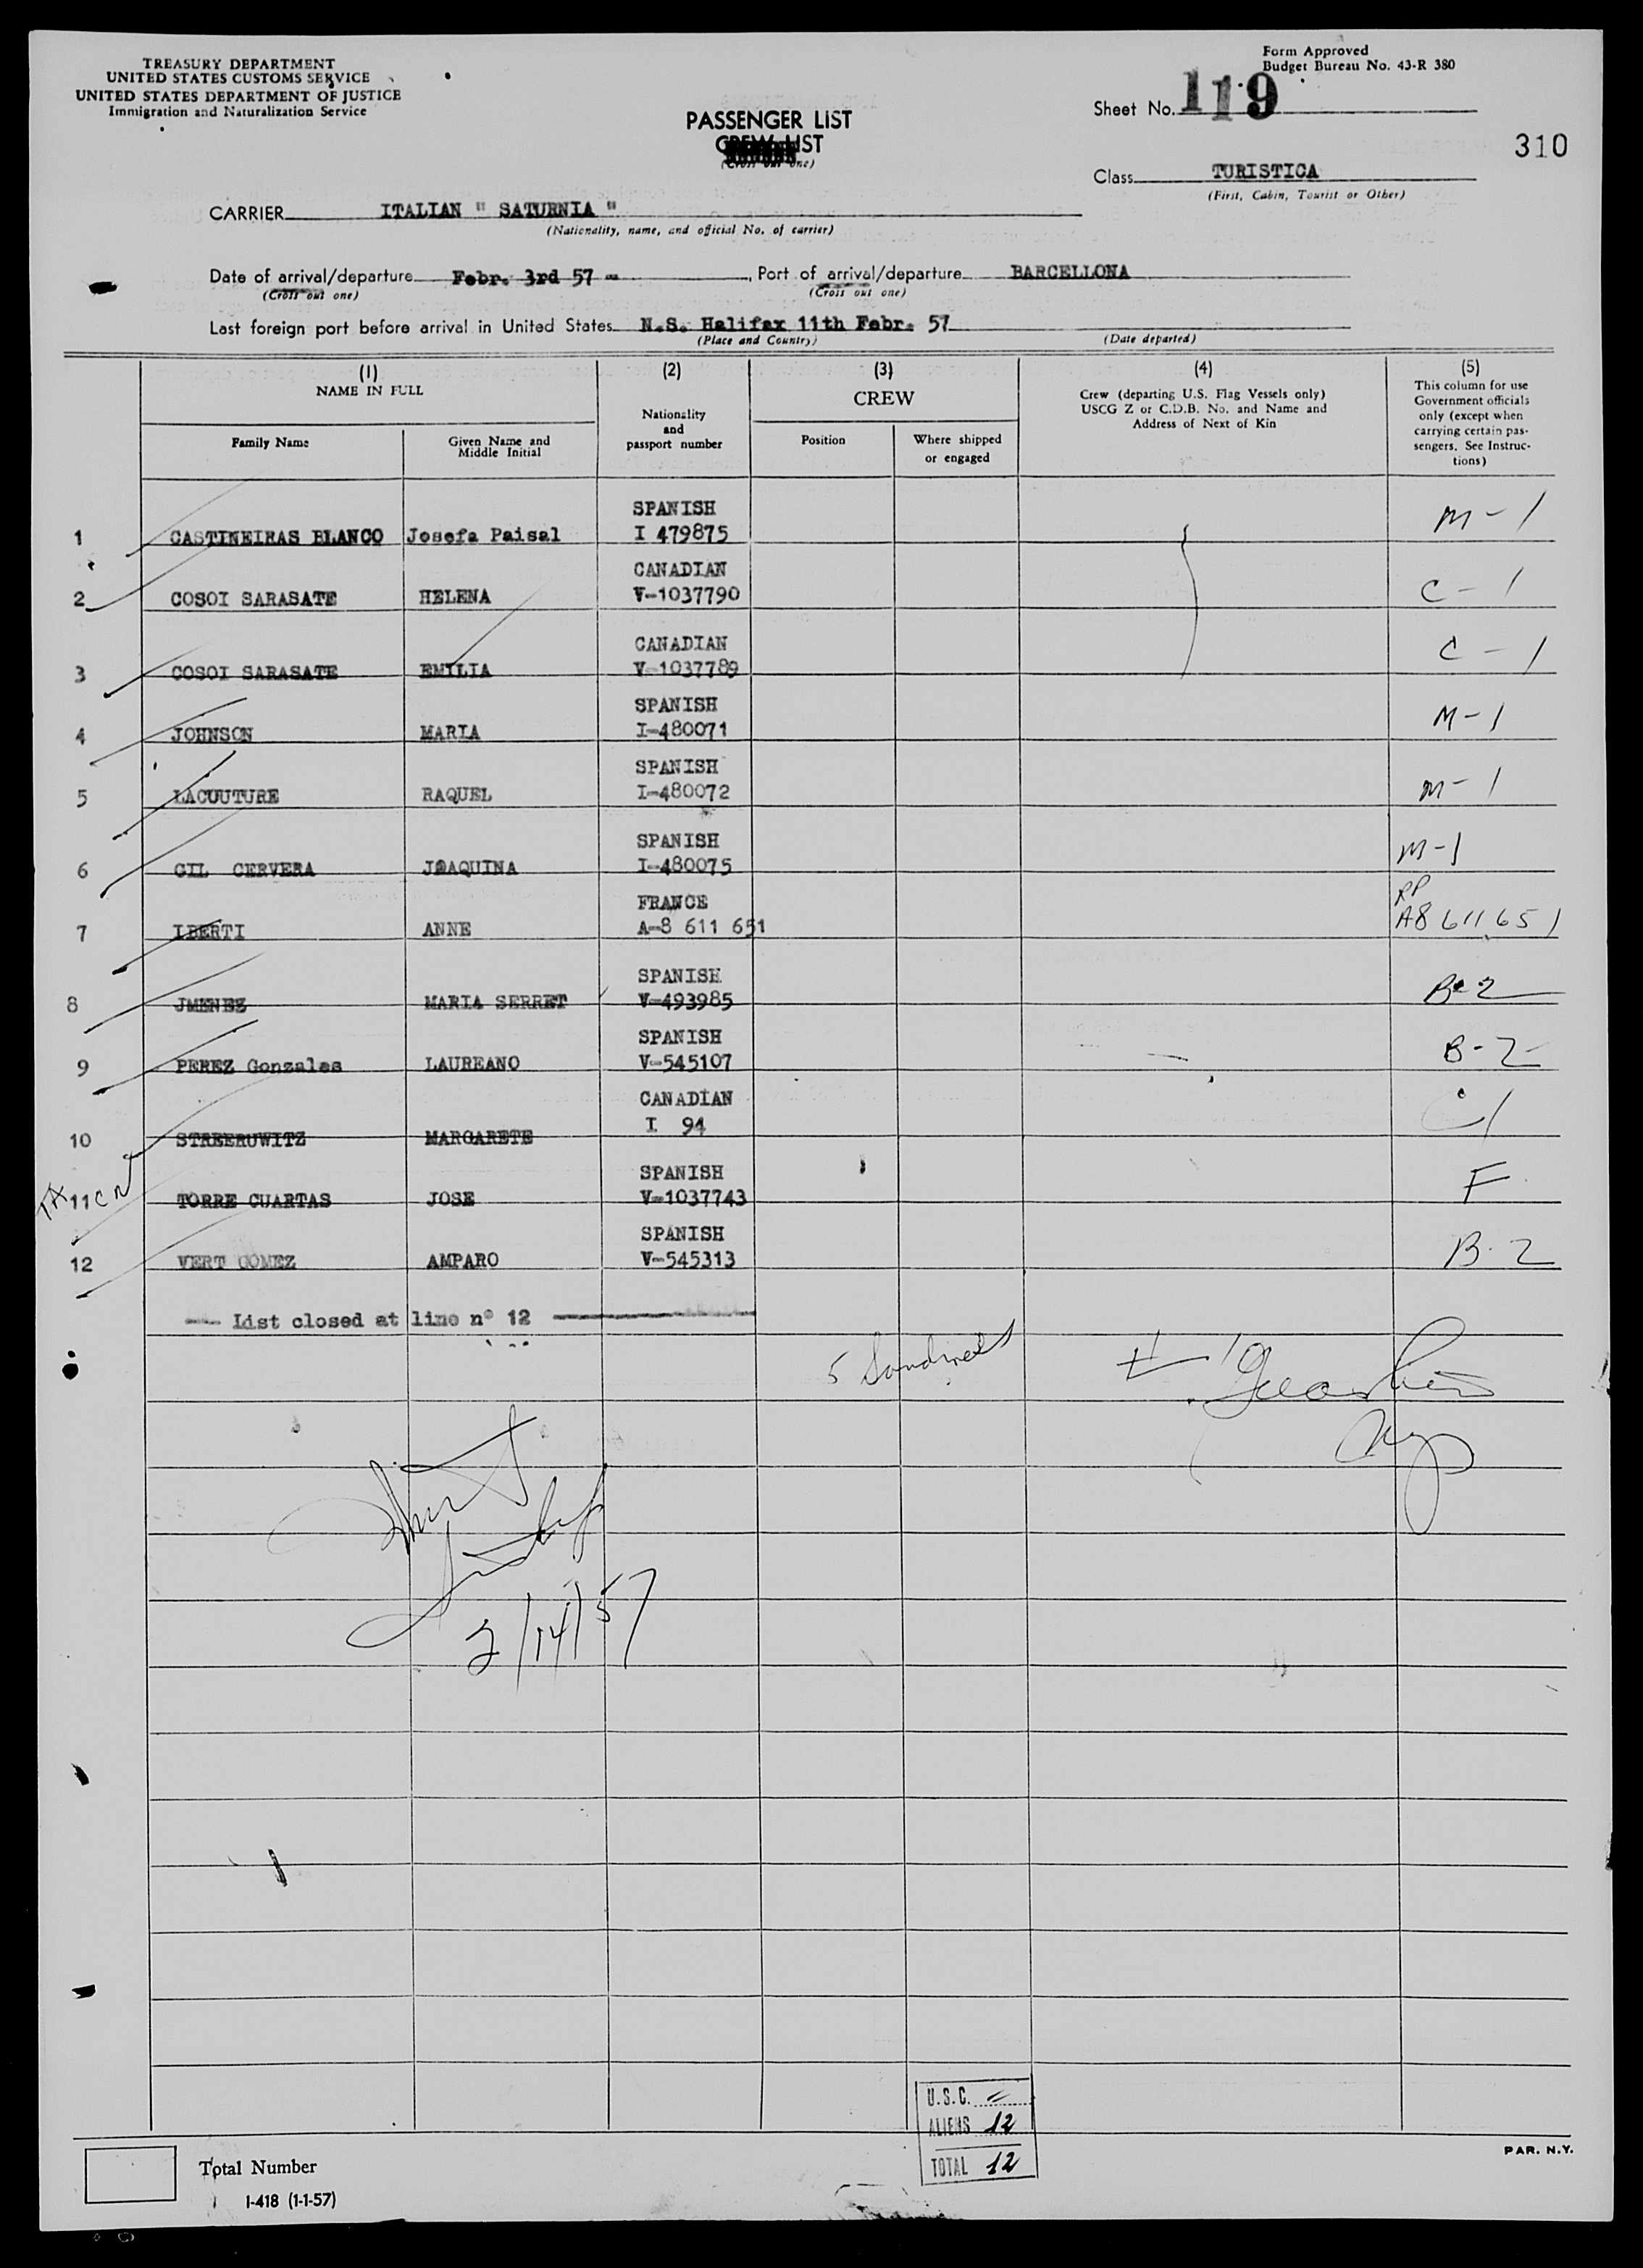 TREASURY DEPARTMENT
UNITED STATES CUSTOMS SERVICE
UNITED STATES DEPARTMENT OF JUSTICE
Immigration and Naturalization Service
Form Approved
Budget Bureau No. 43-R 380
Sheet No. 119
310
PASSENGER LIST
CREW LIST
(Cross out one)
Class TURISTICA
(First, Cabin, Tourist or Other)
CARRIER ITALIAN " SATURNIA "
(Nationality, name, and official No. of carrier)
Date of arrival/departure Febr. 3rd 57 - , Port of arrival/departure BARCELLONA
(Cross out one) (Cross out one)
Last foreign port before arrival in United States N.S. Halifax 11th Febr. 57
(Place and Country) (Date departed)
(1) (2) (3) (4) (5)
NAME IN FULL
Family Name
Given Name and
Middle Initial
Nationality
and
passport number
CREW
Position
Where shipped
or engaged
Crew (departing U.S. Flag Vessels only)
USCG Z or C.D.B. No. and Name and
Address of Next of Kin
This column for use
Government officials
only (except when
carrying certain pas-
sengers. See Instruc-
tions)
SPANISH
1 CASTINEIRAS BLANCO Josefa Paisal I 479875 M-1
CANADIAN
2 COSOI SARASATE HELENA V-1037790 C-1
CANADIAN
3 COSOI SARASATE EMILIA V-1037789 C-1
SPANISH
4 JOHNSON MARIA I-480071 M-1
SPANISH
5 LACOUTURE RAQUEL I-480072 M-1
SPANISH
6 GIL CERVERA JOAQUINA I-480075 M-1
FRANCE RP
7 IBERTI ANNE A-8 611 651 A8 611 651
SPANISH
8 JMENEZ MARIA SERRET V-493985 B-2
SPANISH
9 PEREZ Gonzales LAUREANO V-545107 B-2
CANADIAN
10 STREERUWITZ MARGARETE I 94 C1
SPANISH
11 TORRE CUARTAS JOSE V-1037743 F
SPANISH
12 VERT GOMEZ AMPARO V-545313 B-2
List closed at line n° 12
5
2/14/57
U.S.C.
ALIENS 12
TOTAL 12
PAR. N.Y.
Total Number
I-418 (1-1-57)